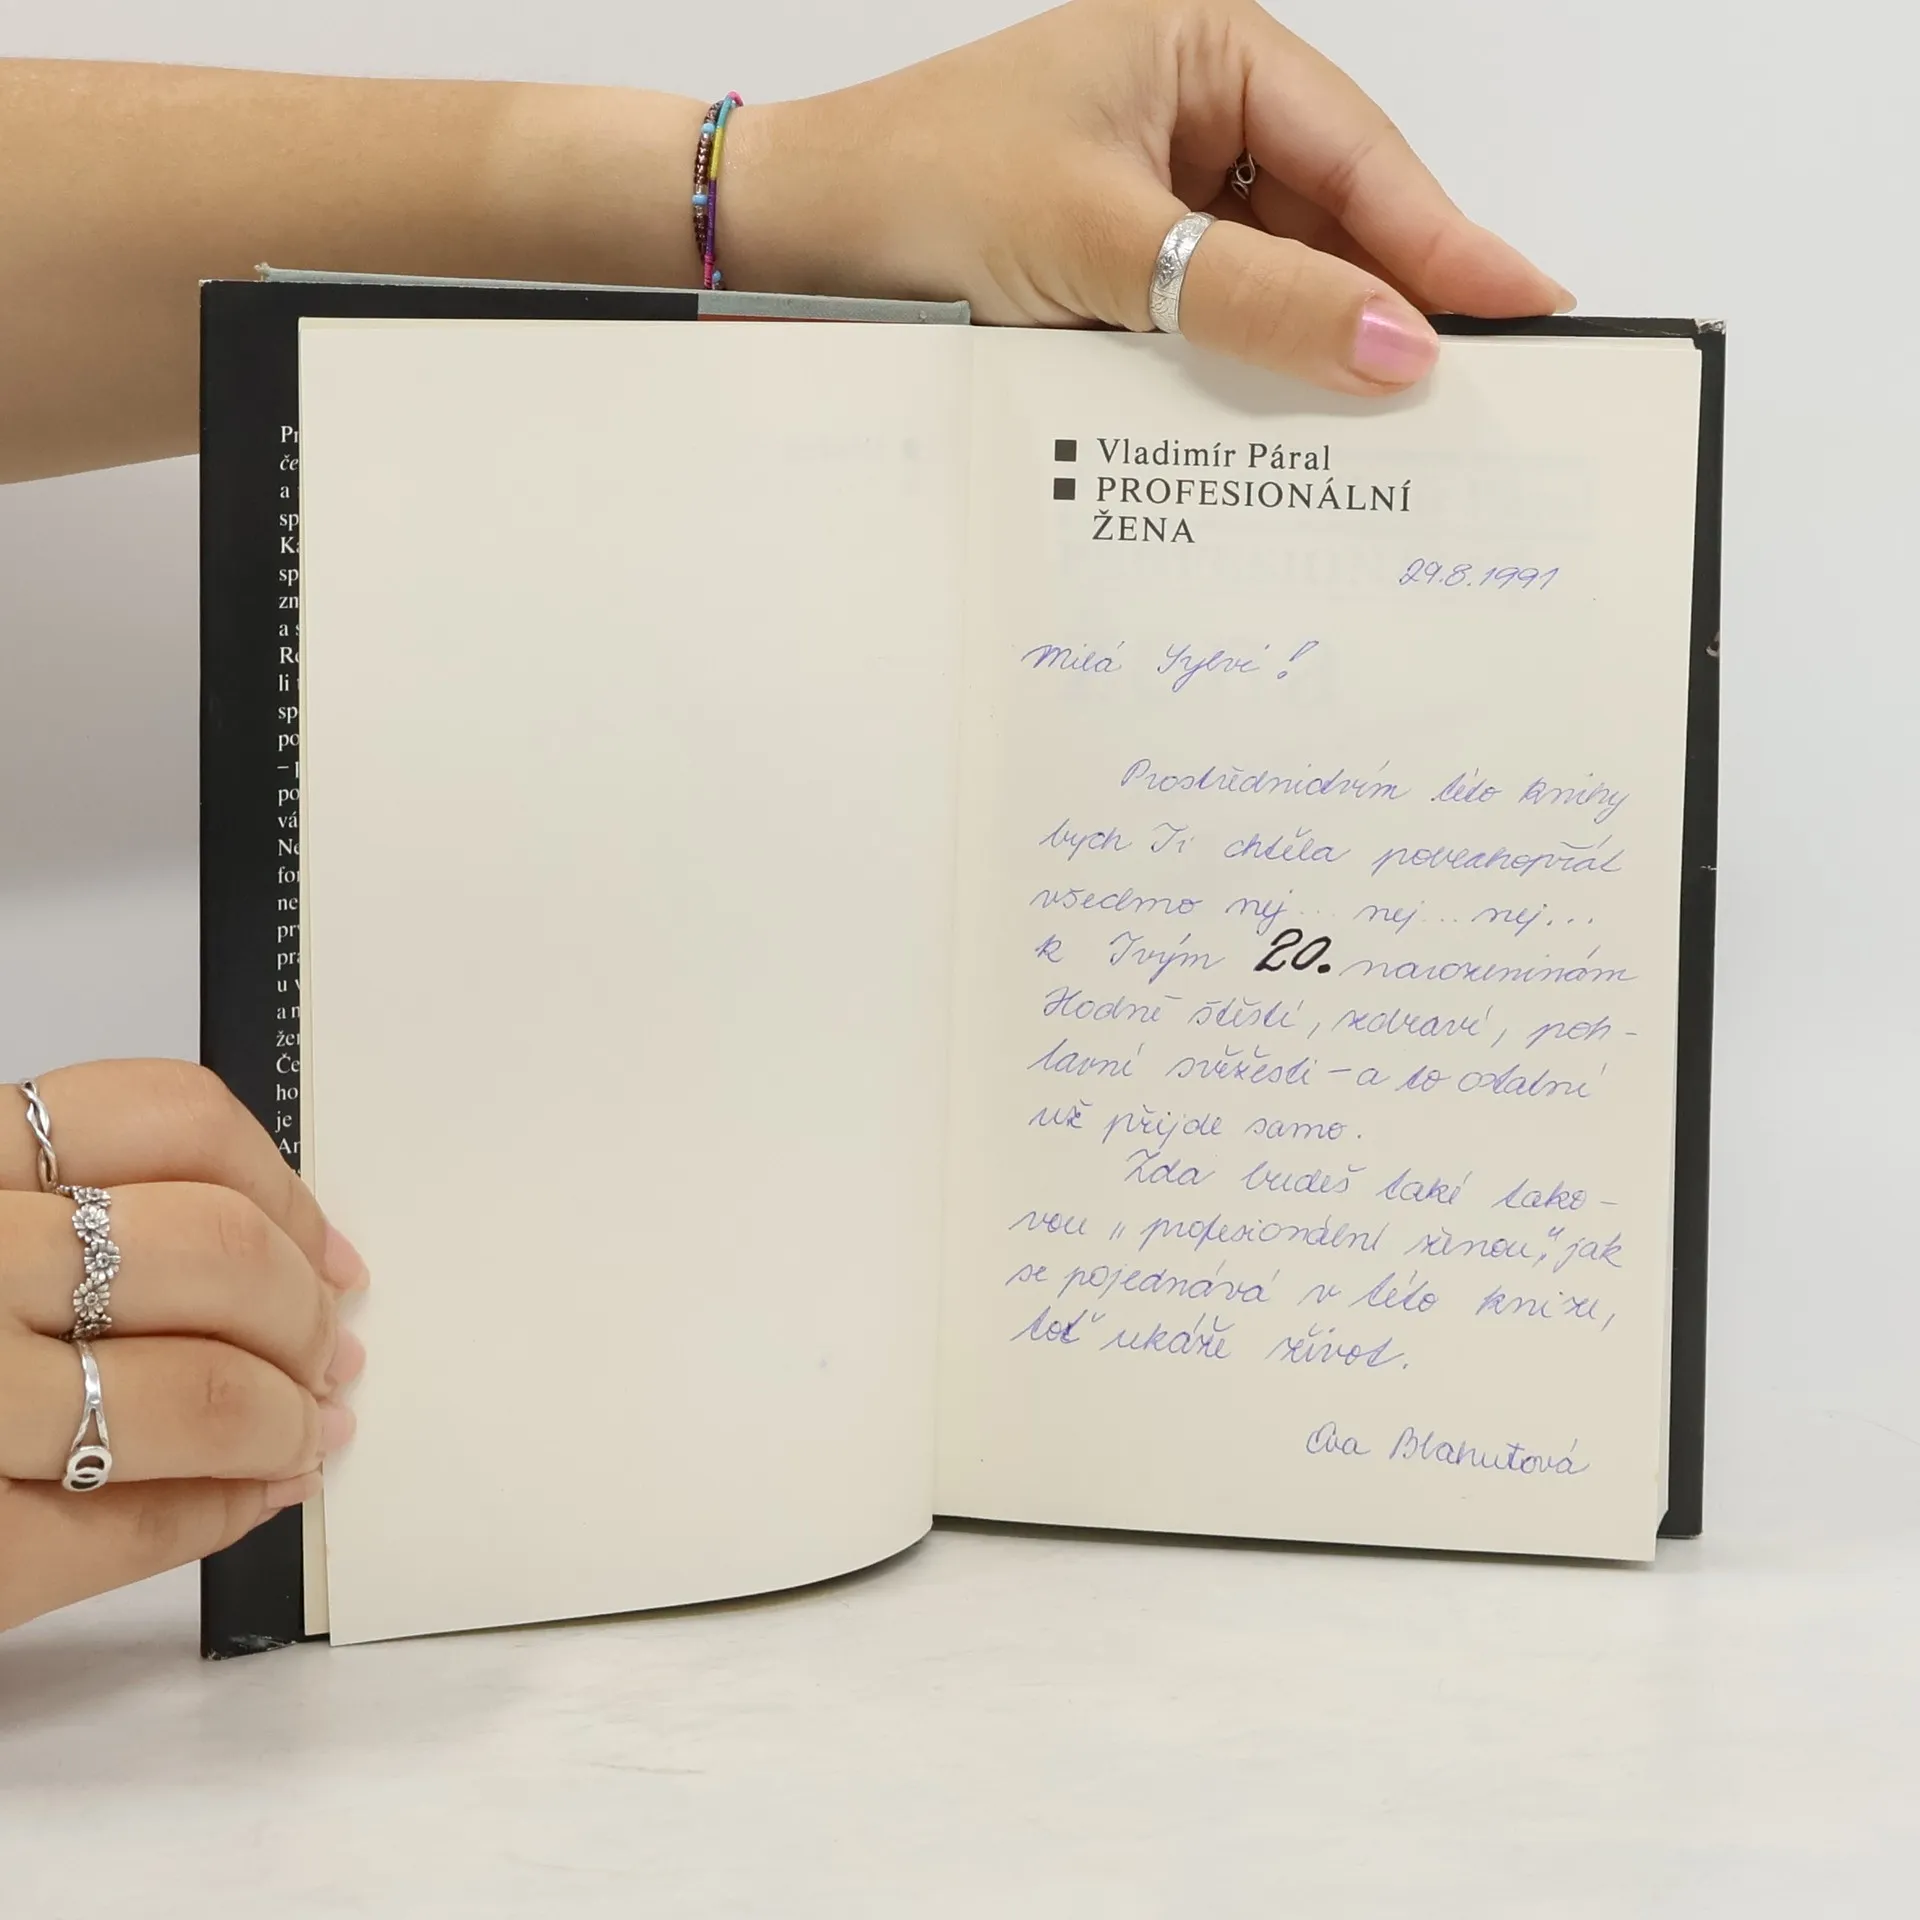 Pr
če
a
sp
Ka
sp
zn
a s
Re
li
sp
po
– p
po
vá
Ne
for
ne
prv
pra
u v
a n
žen
Če
ho
je
An
Vladimír Páral
PROFESIONÁLNÍ
ŽENA
29.8.1991
Milá Sylvi!
Prostřednictvím této knihy
bych Ti chtěla poblahopřát
všechno nej... nej... nej...
k Tvým 20. narozeninám
Hodně štěstí, zdraví, poh-
lavní svěžesti - a to ostatní
už přijde samo.
Zda budeš také tako-
vou „profesionální ženou", jak
se pojednává v této knize,
toť ukáže život.
Eva Blahutová